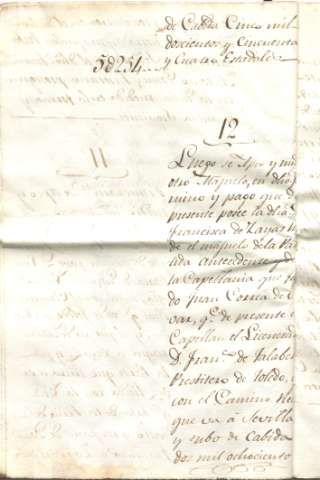 de Cabida Cinco mil
doscientos y Cincuenta
5@254.... y Cuatro Estadales
12
11
Luego se Apeo y mi
otro Majuelo, en dho
mino y pago que d
presente posee la dha D.
Francisca de Zayas
de el majuelo de la Par
tida antecedente y d
la Capellania que f
do Juan Correa de
var, q.e de presente e
Capellan el Licenciad
D. Fran.co de Talabe
Presbitero de Toledo, 
con el Camino Re
que va à Sevilla
y hubo de Cabida
dos mil ochociento